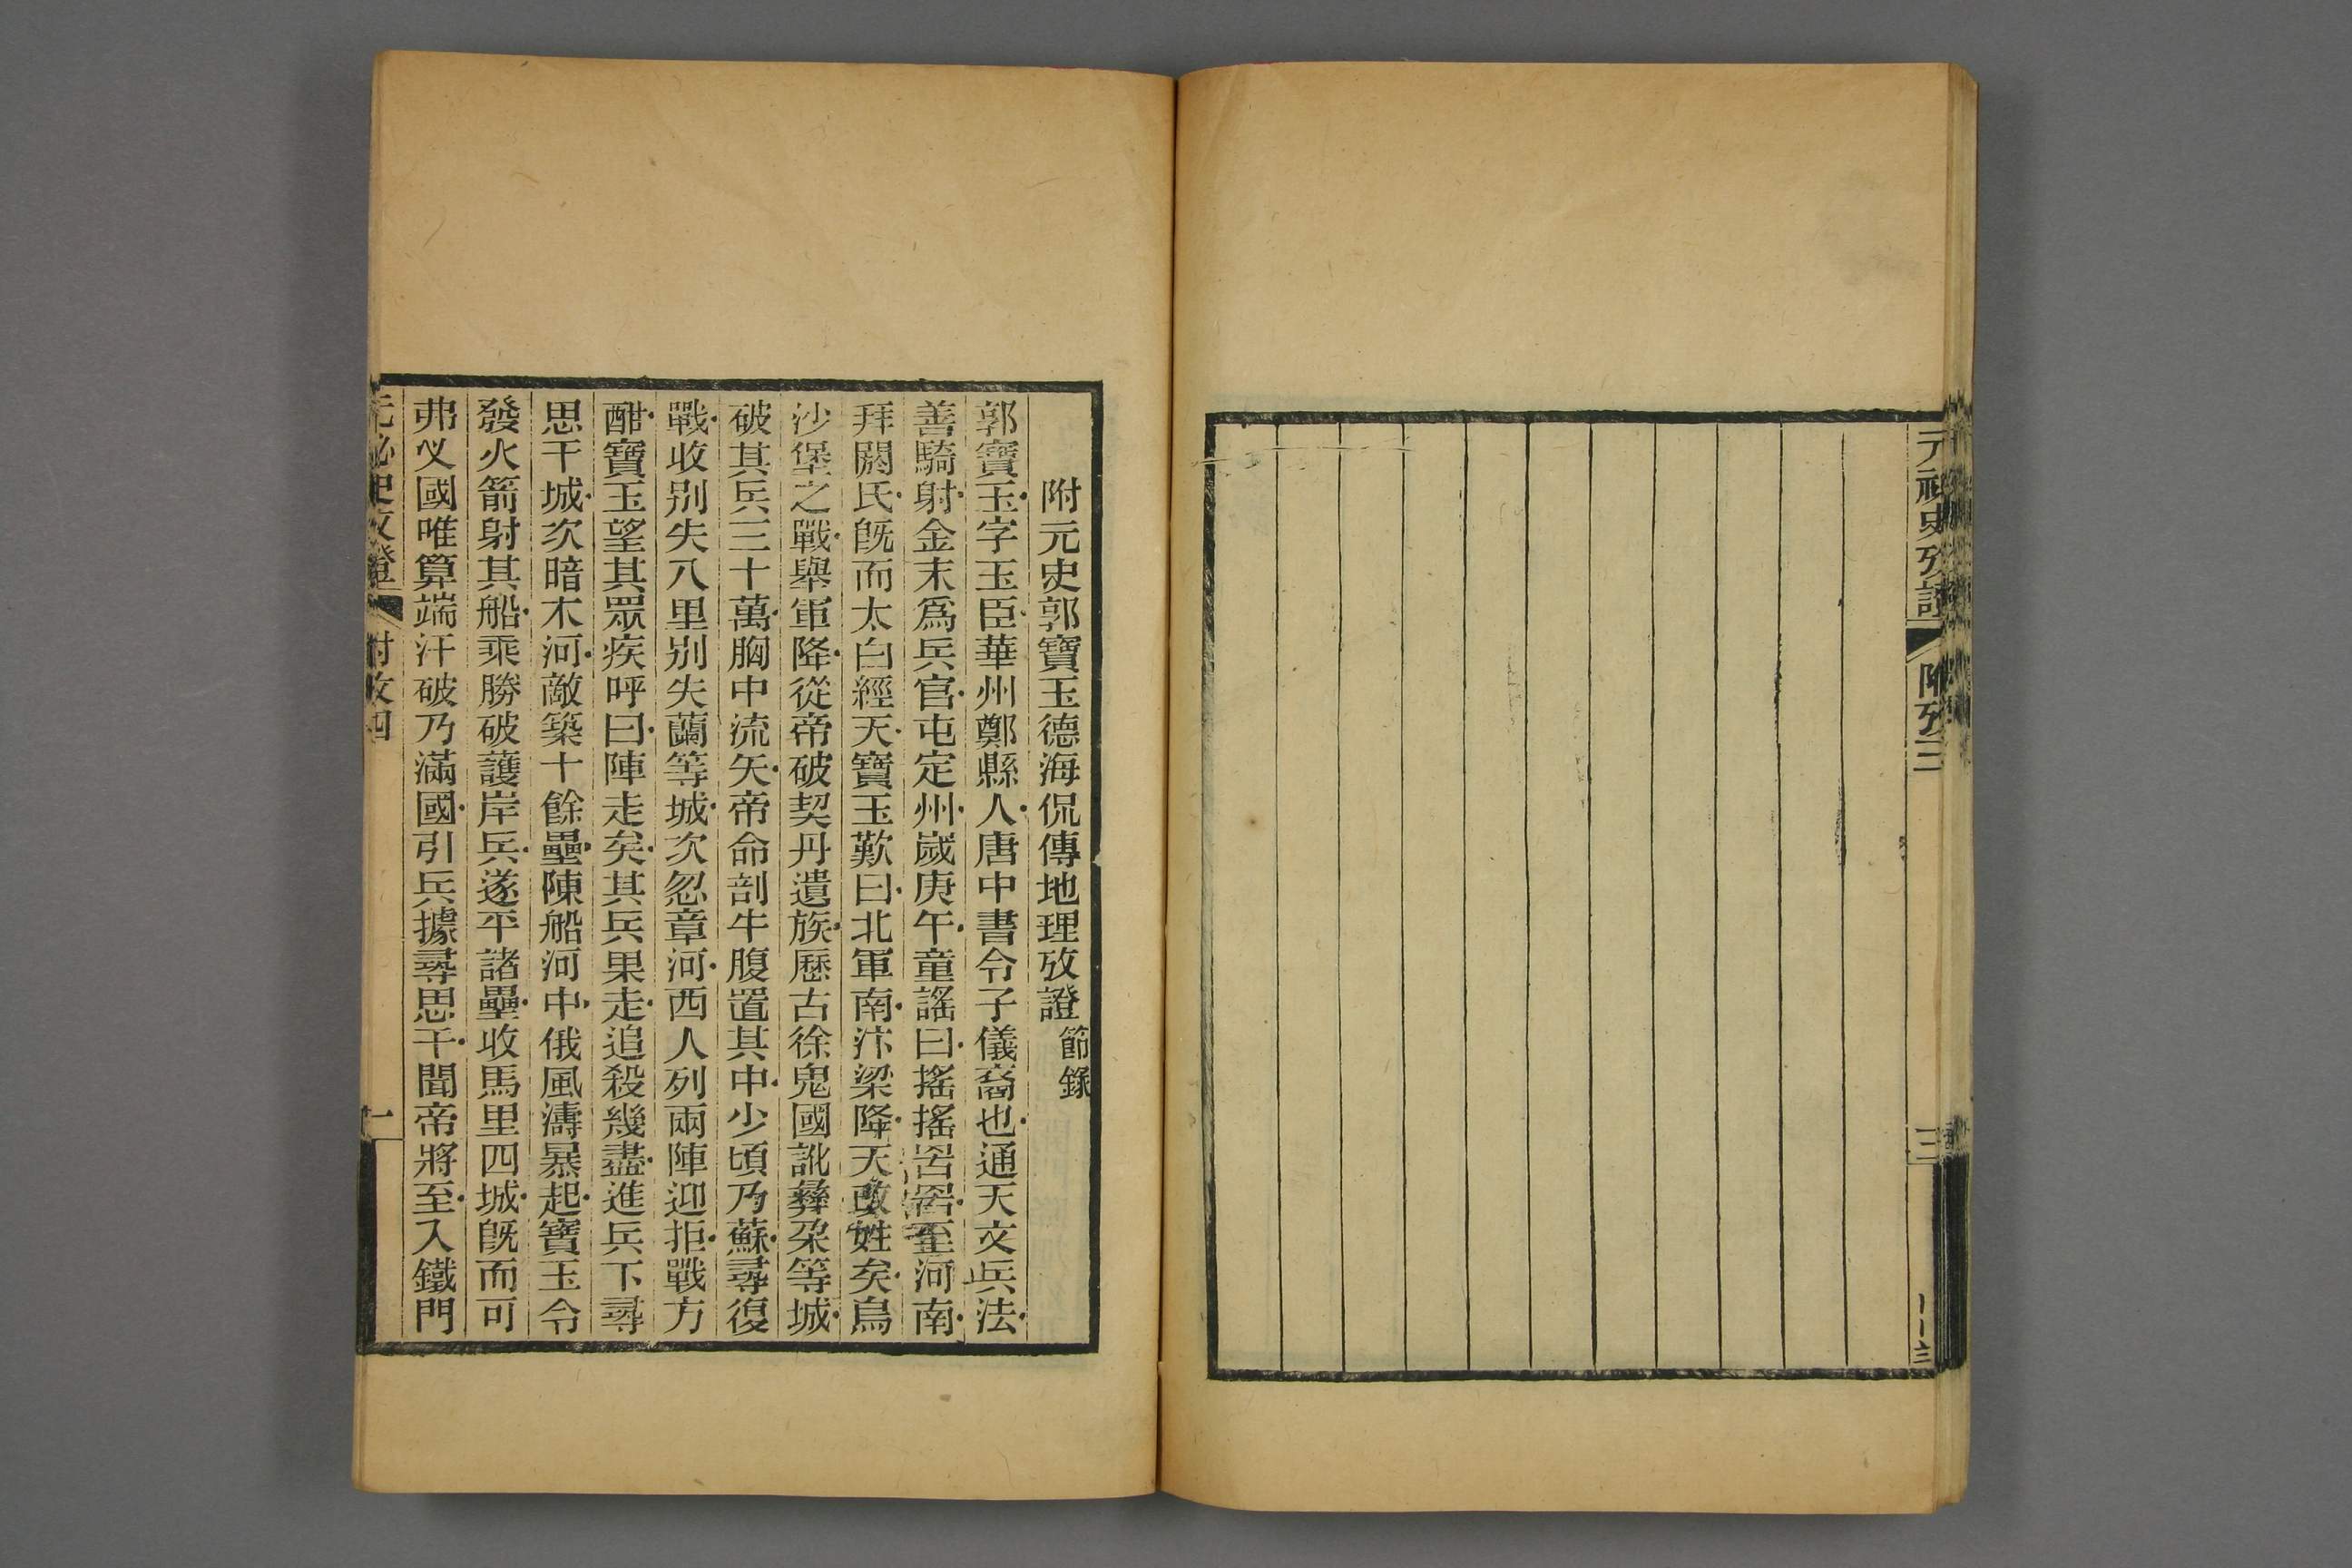 元祕史攷證 附攷三 三
附元史郭寶玉德海侃傳地理攷證 節錄
郭寶玉字玉臣華州鄭縣人唐中書令子儀裔也通天文兵法
善騎射金末爲兵官屯定州歲庚午童謠曰搖搖罟罟至河南
拜閼氏旣而太白經天寶玉歎曰北軍南汴梁降天改姓矣烏
沙堡之戰舉軍降從帝破契丹遺族歷古徐鬼國訛彝朶等城
破其兵三十萬胸中流矢帝命剖牛腹置其中少頃乃蘇尋復
戰收别失八里别失蘭等城次忽章河西人列兩陣迎拒戰方
酣寶玉望其眾疾呼曰陣走矣其兵果走追殺幾盡進兵下尋
思干城次暗木河敵築十餘壘陳船河中俄風濤暴起寶玉令
發火箭射其船乘勝破護岸兵遂平諸壘收馬里四城旣而可
弗乂國唯算端汗破乃滿國引兵據尋思干聞帝將至入鐵門
元祕史攷證 附攷四 一